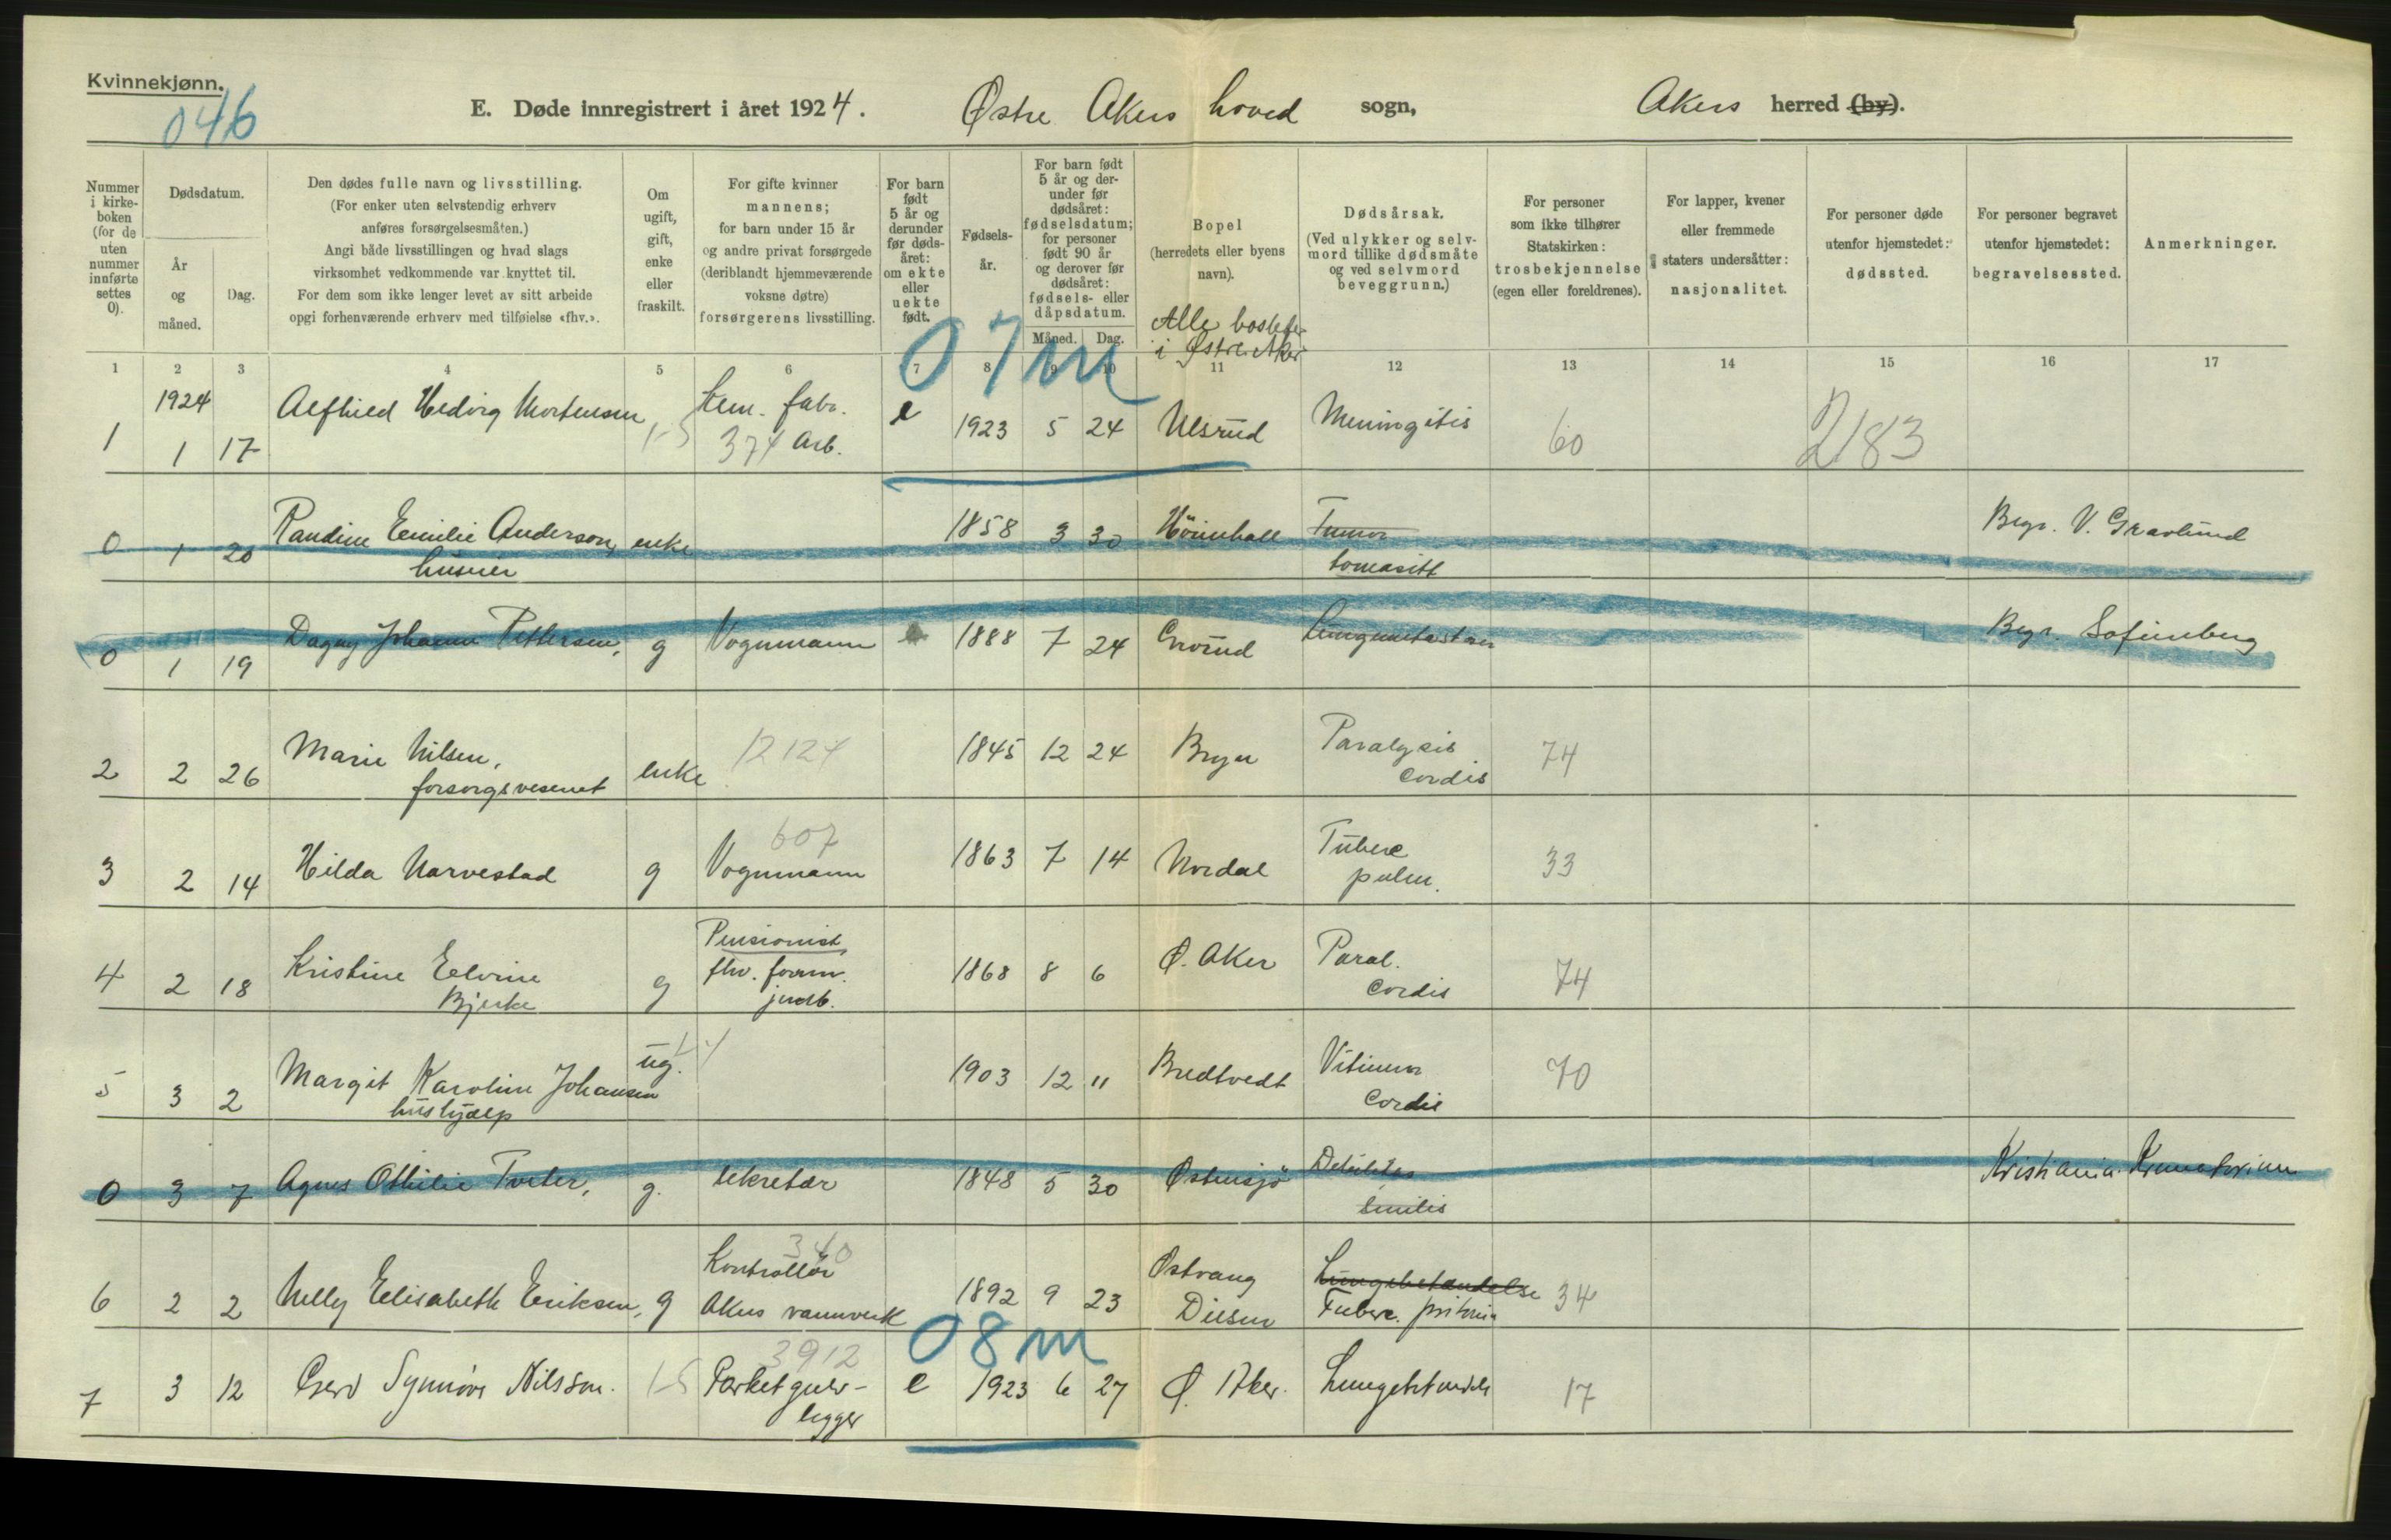 Kvinnekjønn.
046
E. Døde innregistrert i året 1924. Østre Akers hoved sogn, Akers herred (by).
Nummer i kirke-boken (for de uten nummer innførte settes 0).
Dødsdatum.
År og måned.
Dag.
Den dødes fulle navn og livsstilling.
(For enker uten selvstendig erhverv
anføres forsørgelsesmåten.)
Angi både livsstillingen og hvad slags
virksomhet vedkommende var knyttet til.
For dem som ikke lenger levet av sitt arbeide
opgi forhenværende erhverv med tilføielse «fhv.».
Om ugift, gift, enke eller fraskilt.
For gifte kvinner
mannens;
for barn under 15 år
og andre privat forsørgede
(deriblandt hjemmeværende
voksne døtre)
forsørgerens livsstilling.
For barn født 5 år og derunder før døds-året: om ekte eller uekte født.
Fødsels-år.
For barn født
5 år og der-
under før
dødsåret:
fødselsdatum;
for personer
født 90 år
og derover før
dødsåret:
fødsels- eller
dåpsdatum.
Måned. Dag.
Bopel
(herredets eller byens
navn).
Alle bosatte
i Østre Aker
Dødsårsak.
(Ved ulykker og selv-
mord tillike dødsmåte
og ved selvmord
beveggrunn.)
For personer
som ikke tilhører
Statskirken:
trosbekjennelse
(egen eller foreldrenes).
For lapper, kvener
eller fremmede
staters undersåtter:
nasjonalitet.
For personer døde
utenfor hjemstedet:
dødssted.
For personer begravet
utenfor hjemstedet:
begravelsessted.
Anmerkninger.
1 2 3 4 5 6 7 8 9 10 11 12 13 14 15 16 17
07m
1924
1 1 17 Alfhild Hedvig Mortensen 1-5 kem. fabr. e 1923 5 24 Ulsrud Meningitis 60 2183
374 Arb.
0 1 20 Randine Emilie Anderson, enke 1858 3 30 Höienhall Tumor Begr. V. Gravlund
huseier
0 1 19 Dagny Johanne Pettersen, g Vognmann 1888 7 24 Grorud Begr. Sofienberg
2 2 26 Marie Nilsen, enke 12124 1845 12 24 Bryn Paralysis 74
forsorgsvesenet Cordis
3 2 14 Hilda Narvestad g 607 Vognmann 1863 7 14 Nordal Tuberc 33
pulm.
4 2 18 Kristine Elvine g Pensionist, 1868 8 6 Ø. Aker Paral. 74
Bjerke fhv. form. Cordis
jernb.
5 3 2 Margit Karoline Johansen ug. 1903 12 11 Bredtvedt Vitium 70
hushjælp Cordis
0 3 7 Agnes Othilie Tveter, g. sekretær 1848 5 30 Østensjö Debilitas Kristiania Krematorium
Senilis
6 2 2 Nelly Elisabeth Eriksen, g 340 Kontrollör 1892 9 23 Østvang Lungebetændelse 34
Akers vannverk Disen Tuberc.
08m
7 3 12 Gerd Synnöve Nilsson. 1-5 3912 Parketgulv- e 1923 6 27 Ø. Aker. Lungebetændelse 17
legger